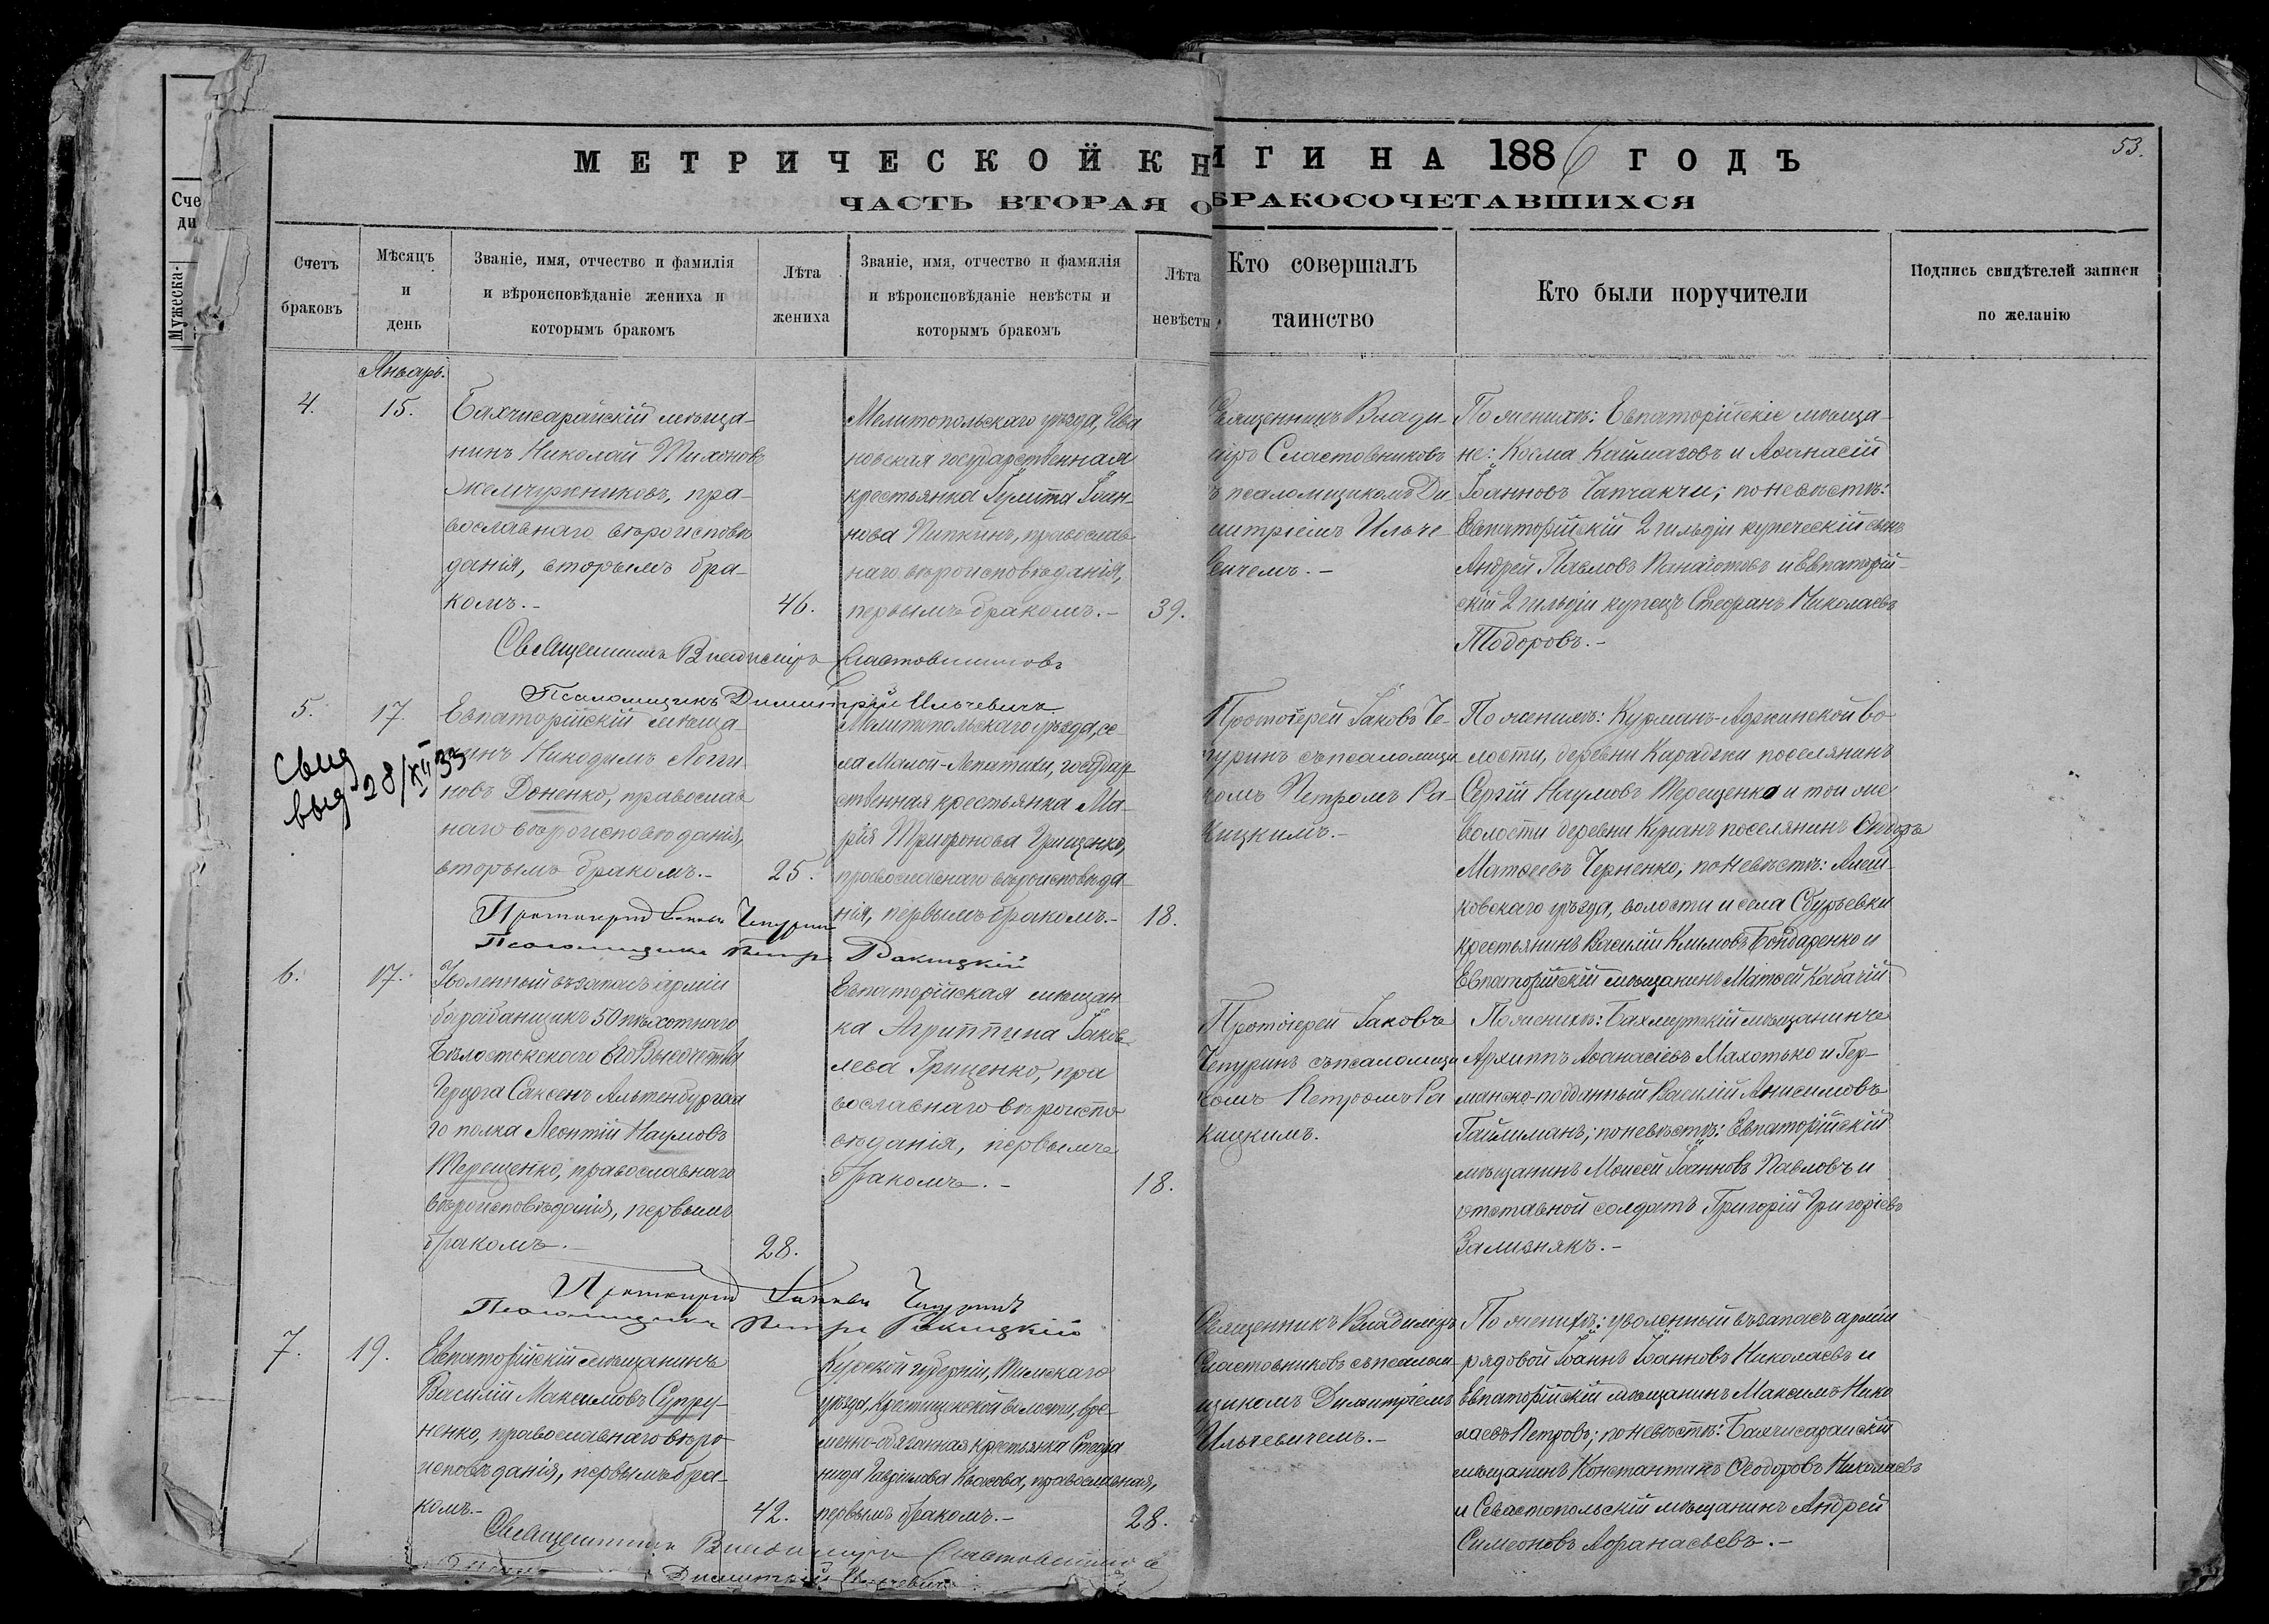 МЕТРИЧЕСКОЙ КНИГИ НА 1886 ГОДЪ
53.
ЧАСТЬ ВТОРАЯ О БРАКОСОЧЕТАВШИХСЯ
Сче
ди
Мужеска-
Счетъ
браковъ
Мѣсяцъ
и
день
Званіе, имя, отчество и фамилія
и вѣроисповѣданіе жениха и
которымъ бракомъ
Лѣта
жениха
Званіе, имя, отчество и фамилія
и вѣроисповѣданіе невѣсты и
которымъ бракомъ
Лѣта
невѣсты
Кто совершалъ
таинство
Кто были поручители
Подпись свидѣтелей записи
по желанію
Январь.
4.
15.
Бахчисарайскій мѣща-
нинъ Николай Тихоновъ
Жемчужниковъ, пра-
вославнаго вѣроисповѣ
данія, вторымъ бра-
комъ.-
46.
Мелитопольскаго уѣзда, Ива
новская государственная
крестьянка Іулита Іоан-
нова Пипкинъ, православ
наго вѣроисповѣданія,
первымъ бракомъ.-
39.
Священникъ Влади
міръ Сластовниковъ
съ псаломщикомъ Ди
митріемъ Ильче
вичемъ.-
По женихѣ: Евпаторійскіе мѣща-
не: Косма Каймаговъ и Аѳанасій
Іоанновъ Чапчакчи; по невѣстѣ:
Евпаторійскій 2 гильдіи купеческій сынъ
Андрей Павловъ Панаіотовъ и Евпаторій-
скій 2 гильдіи купецъ Стефанъ Николаевъ
Тодоровъ.-
Священникъ Владиміръ Сластовниковъ
Псаломщикъ Димитрій Ильчевичъ
5.
17.
Свид
выд 28/XII 35
Евпаторійскій мѣща
нинъ Никодимъ Логги
новъ Доненко, православ
наго вѣроисповѣданія,
вторымъ бракомъ.-
25.
Мелитопольскаго уѣзда, се-
ла Малой-Лепатихи, государ
ственная крестьянка Ма-
рія Трифонова Грищенко,
православнаго вѣроисповѣда-
нія, первымъ бракомъ.-
18.
Протоіерей Іаковъ Че-
пуринъ съ псаломщи
комъ Петромъ Ра-
кицкимъ.-
По женихѣ: Курманъ-Аджинской во-
лости, деревни Караджи поселянинъ
Сергій Наумовъ Терещенко и той же
волости деревни Кунанъ поселянинъ Ѳедоръ
Матѳеевъ Черненко, по невѣстѣ: Алеш-
ковскаго уѣзда, волости и села Збурьевки
крестьянинъ Василій Климовъ Бондаренко и
Евпаторійскій мѣщанинъ Матвей Кабачій
Протоіерей Іаковъ Чепуринъ
Псаломщикъ Петръ Ракицкій
6.
17.
Уволенный въ запасъ арміи
барабанщикъ 50 пѣхотнаго
Бѣлостокскаго Его Высочества
Герцога Саксенъ Альтенбургска
го полка Леонтій Наумовъ
Терещенко, православнаго
вѣроисповѣданія, первымъ
бракомъ.-
28.
Евпаторійская мѣщан
ка Агриппина Іаков-
лева Гриценко, пра
вославнаго вѣроиспо
вѣданія, первымъ
бракомъ.-
18.
Протоіерей Іаковъ
Чепуринъ съ псаломщи
комъ Петромъ Ра
кицкимъ.
По женихѣ: Бахмутскій мѣщанинъ
Архиппъ Аѳанасіевъ Махотько и Гер-
манско-подданный Василій Анисимовъ
Гайлиманъ; по невѣстѣ: Евпаторійскій
мѣщанинъ Моисей Іоанновъ Павловъ и
отставной солдатъ Григорій Григоріевъ
Зализнякъ.-
Протоіерей Іаковъ Чепуринъ
Псаломщикъ Петръ Ракицкій
7.
19.
Евпаторійскій мѣщанинъ
Василій Максимовъ Супру-
ненко, православнаго вѣро
исповѣданія, первымъ бра-
комъ.-
42.
Курской губерніи, Тимскаго
уѣзда, Крестищенской волости, вре-
менно-обязанная крестьянка Стефа
нида Гаврилова Квасова, православная,
первымъ бракомъ.-
28.
Священникъ Владиміръ
Сластовниковъ съ псалом-
щикомъ Димитріемъ
Ильчевичемъ.-
По женихѣ: уволенный въ запасъ арміи
рядовой Іоаннъ Іоанновъ Николаевъ и
Евпаторійскій мѣщанинъ Максимъ Нико
лаевъ Петровъ; по невѣстѣ: Бахчисарайскій
мѣщанинъ Константинъ Ѳеодоровъ Николаевъ
и Севастопольскій мѣщанинъ Андрей
Симеоновъ Афанасьевъ.-
Священникъ Владиміръ Сластовниковъ
Димитрій Ильчевичъ